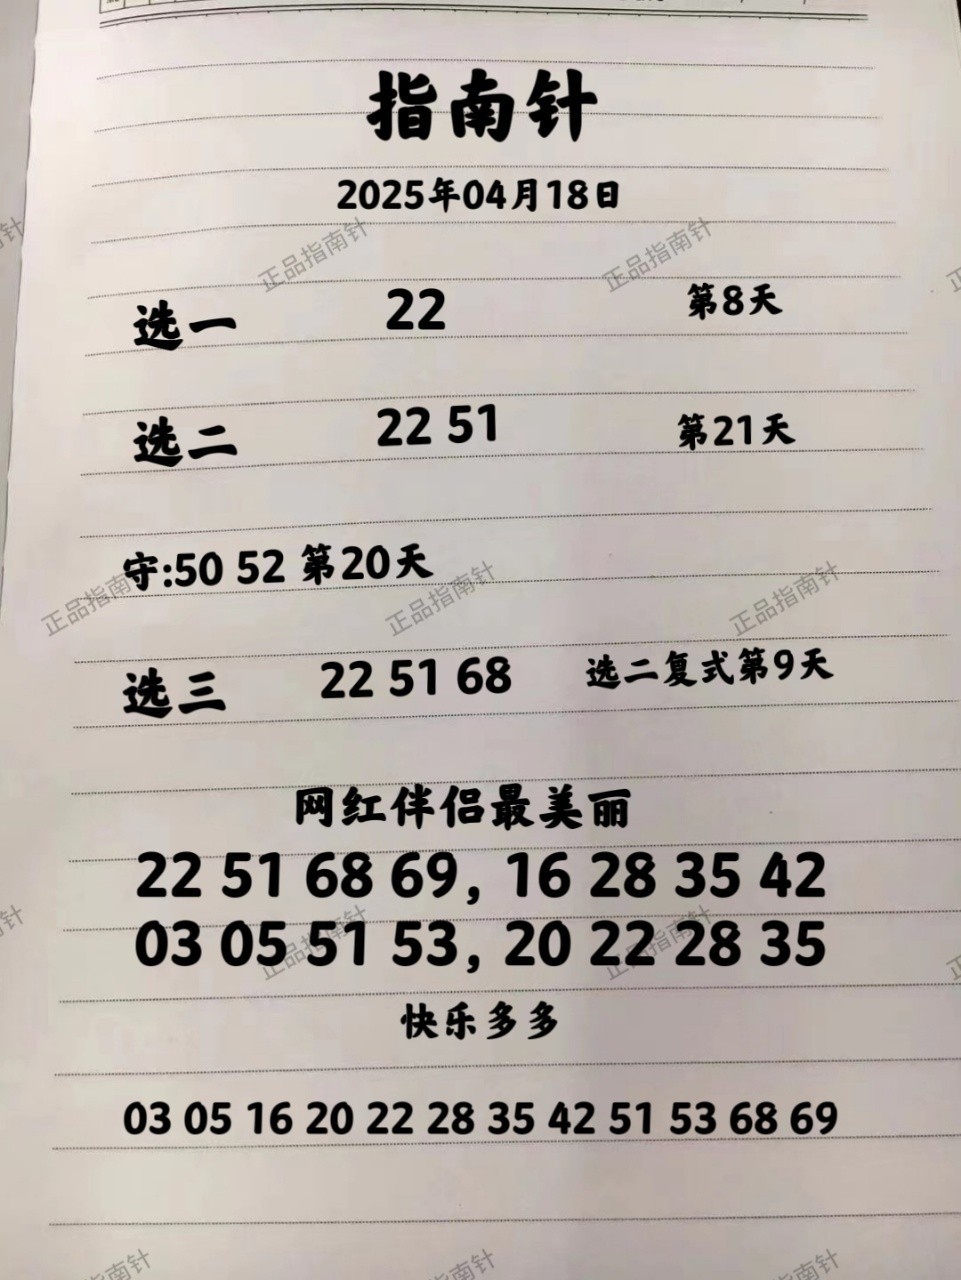 指南针
2025年04月18日
选一 22 第8天
选二 22 51 第21天
守:50 52 第20天
选三 22 51 68 选二复式第9天
网红伴侣最美丽
22 51 68 69, 16 28 35 42
03 05 51 53, 20 22 28 35
快乐多多
03 05 16 20 22 28 35 42 51 53 68 69
正品指南针
正品指南针
正品指南针
正品指南针
正品指南针
正品指南针
正品指南针